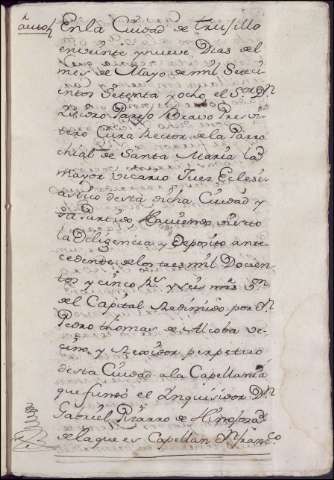 Auto
En la Ciudad de Trujillo
en veinte y nueve Dias del
mes de Mayo de mil Setec
ientos Setenta y ocho el Sor Dn
Isidro Bravo Presvi
tero Cura Rector de la Parro
chial de Santa Maria la
Mayor Vicario Juez Eclesi
astico desta dicha Ciudad y
su Partido Haviendo visto
la Diligencia y Deposito ante
cedente de los tres mil Docien
tos y cinco Rs y seis mrs Vn
del Capital Redimido por Dn
Pedro thomas de Alcoba ve
cino y Rexidor perpetuo
desta Ciudad a la Capellania
que fundó el Ynquisidor Dn
Gabriel Pizarro de Hinojosa
de la que es Capellan Dn Franco